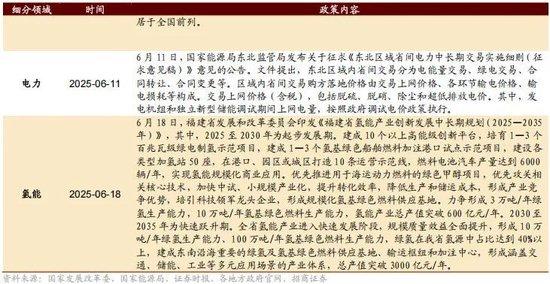 细分领域 时间 政策内容
居于全国前列。
6 月 11 日，国家能源局东北监管局发布关于征求《东北区域省间电力中长期交易实施细则（征
求意见稿）》意见的公告。文件提出，东北区域内省间交易分为电能量交易、绿电交易、合
同转让、合同变更等。区域内省间交易购方落地价由交易上网价格、各环节输电价格、输
电力 2025-06-11
电损耗等构成。交易上网价格（含税），包括脱硫、脱硝、除尘和超低排放电价。其中，发
电机组和独立新型储能调试期间上网电量，按照政府调试电价政策执行。
6 月 18 日，福建省发展和改革委员会印发《福建省氢能产业创新发展中长期规划（2025—2035
年）》，其中，2025 至 2030 年为起步发展期。建成 10 个以上高能级创新平台，培育 1—3 个
百兆瓦级绿电制氢示范项目，建成 1—3 个氢基绿色船舶燃料加注港口试点示范项目，建设各
类型加氢站 50 座，在港口、园区或城区打造 10 条运营示范线，燃料电池汽车产量达到 6000
辆/年，实现氢能规模化商业应用。优先推进用于海运动力燃料的绿色甲醇项目，优先攻关相
关核心技术，加快中试、小规模产业化，提升转化效率，降低生产和储运成本，形成产业竞
氢能 2025-06-18
争优势，培引科技领军龙头企业，形成规模化氢基绿色燃料供应基地。力争形成 3 万吨/年绿
氢生产能力，10 万吨/年氢基绿色燃料生产能力，氢能产业总产值突破 600 亿元/年。2030 至
2035 年为快速跃升期。全省氢能产业进入快速发展阶段，规模质量效益全面提升，形成 10 万
吨/年绿氢生产能力、100 万吨/年氢基绿色燃料生产能力，绿氢在我省氢源中占比达到 40%以
上，建成东南沿海重要的绿氢及氢基绿色燃料供应基地、运输枢纽和加注中心，形成涵盖交
通、储能、工业等多元应用场景的产业体系，总产值突破 3000 亿元/年。
资料来源：国家发展改革委、国家能源局、证券时报、各地方政府官网、招商证券